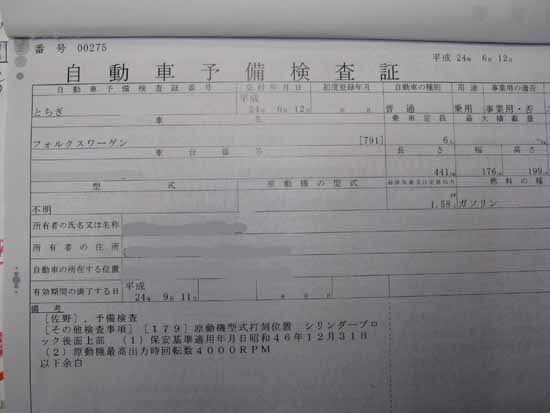 番号 00275
平成 24年 6月 12日
自動車予備検査証
自動車予備検査証番号 交付年月日 初度登録年月 自動車の種別 用途 事業用の適否
とちぎ 平成 24年 6月 12日 年 月 普通 乗用 事業用・否
車名 乗車定員 最大積載量
フォルクスワーゲン [791] 6人
車台番号 長さ 幅 高さ
441cm 176cm 199
型式 原動機の型式 燃料の種
不明 1.58 ガソリン
所有者の氏名又は名称
所有者の住所
自動車の所在する位置
有効期間の満了する日 平成 24年 9月 11日 年 月 日
備考
[佐野],予備検査
[その他検査事項] [179] 原動機型式打刻位置 シリンダーブロ
ック後面上部 (1)保安基準適用年月日昭和46年12月31日
(2)原動機最高出力時回転数4000RPM
以下余白